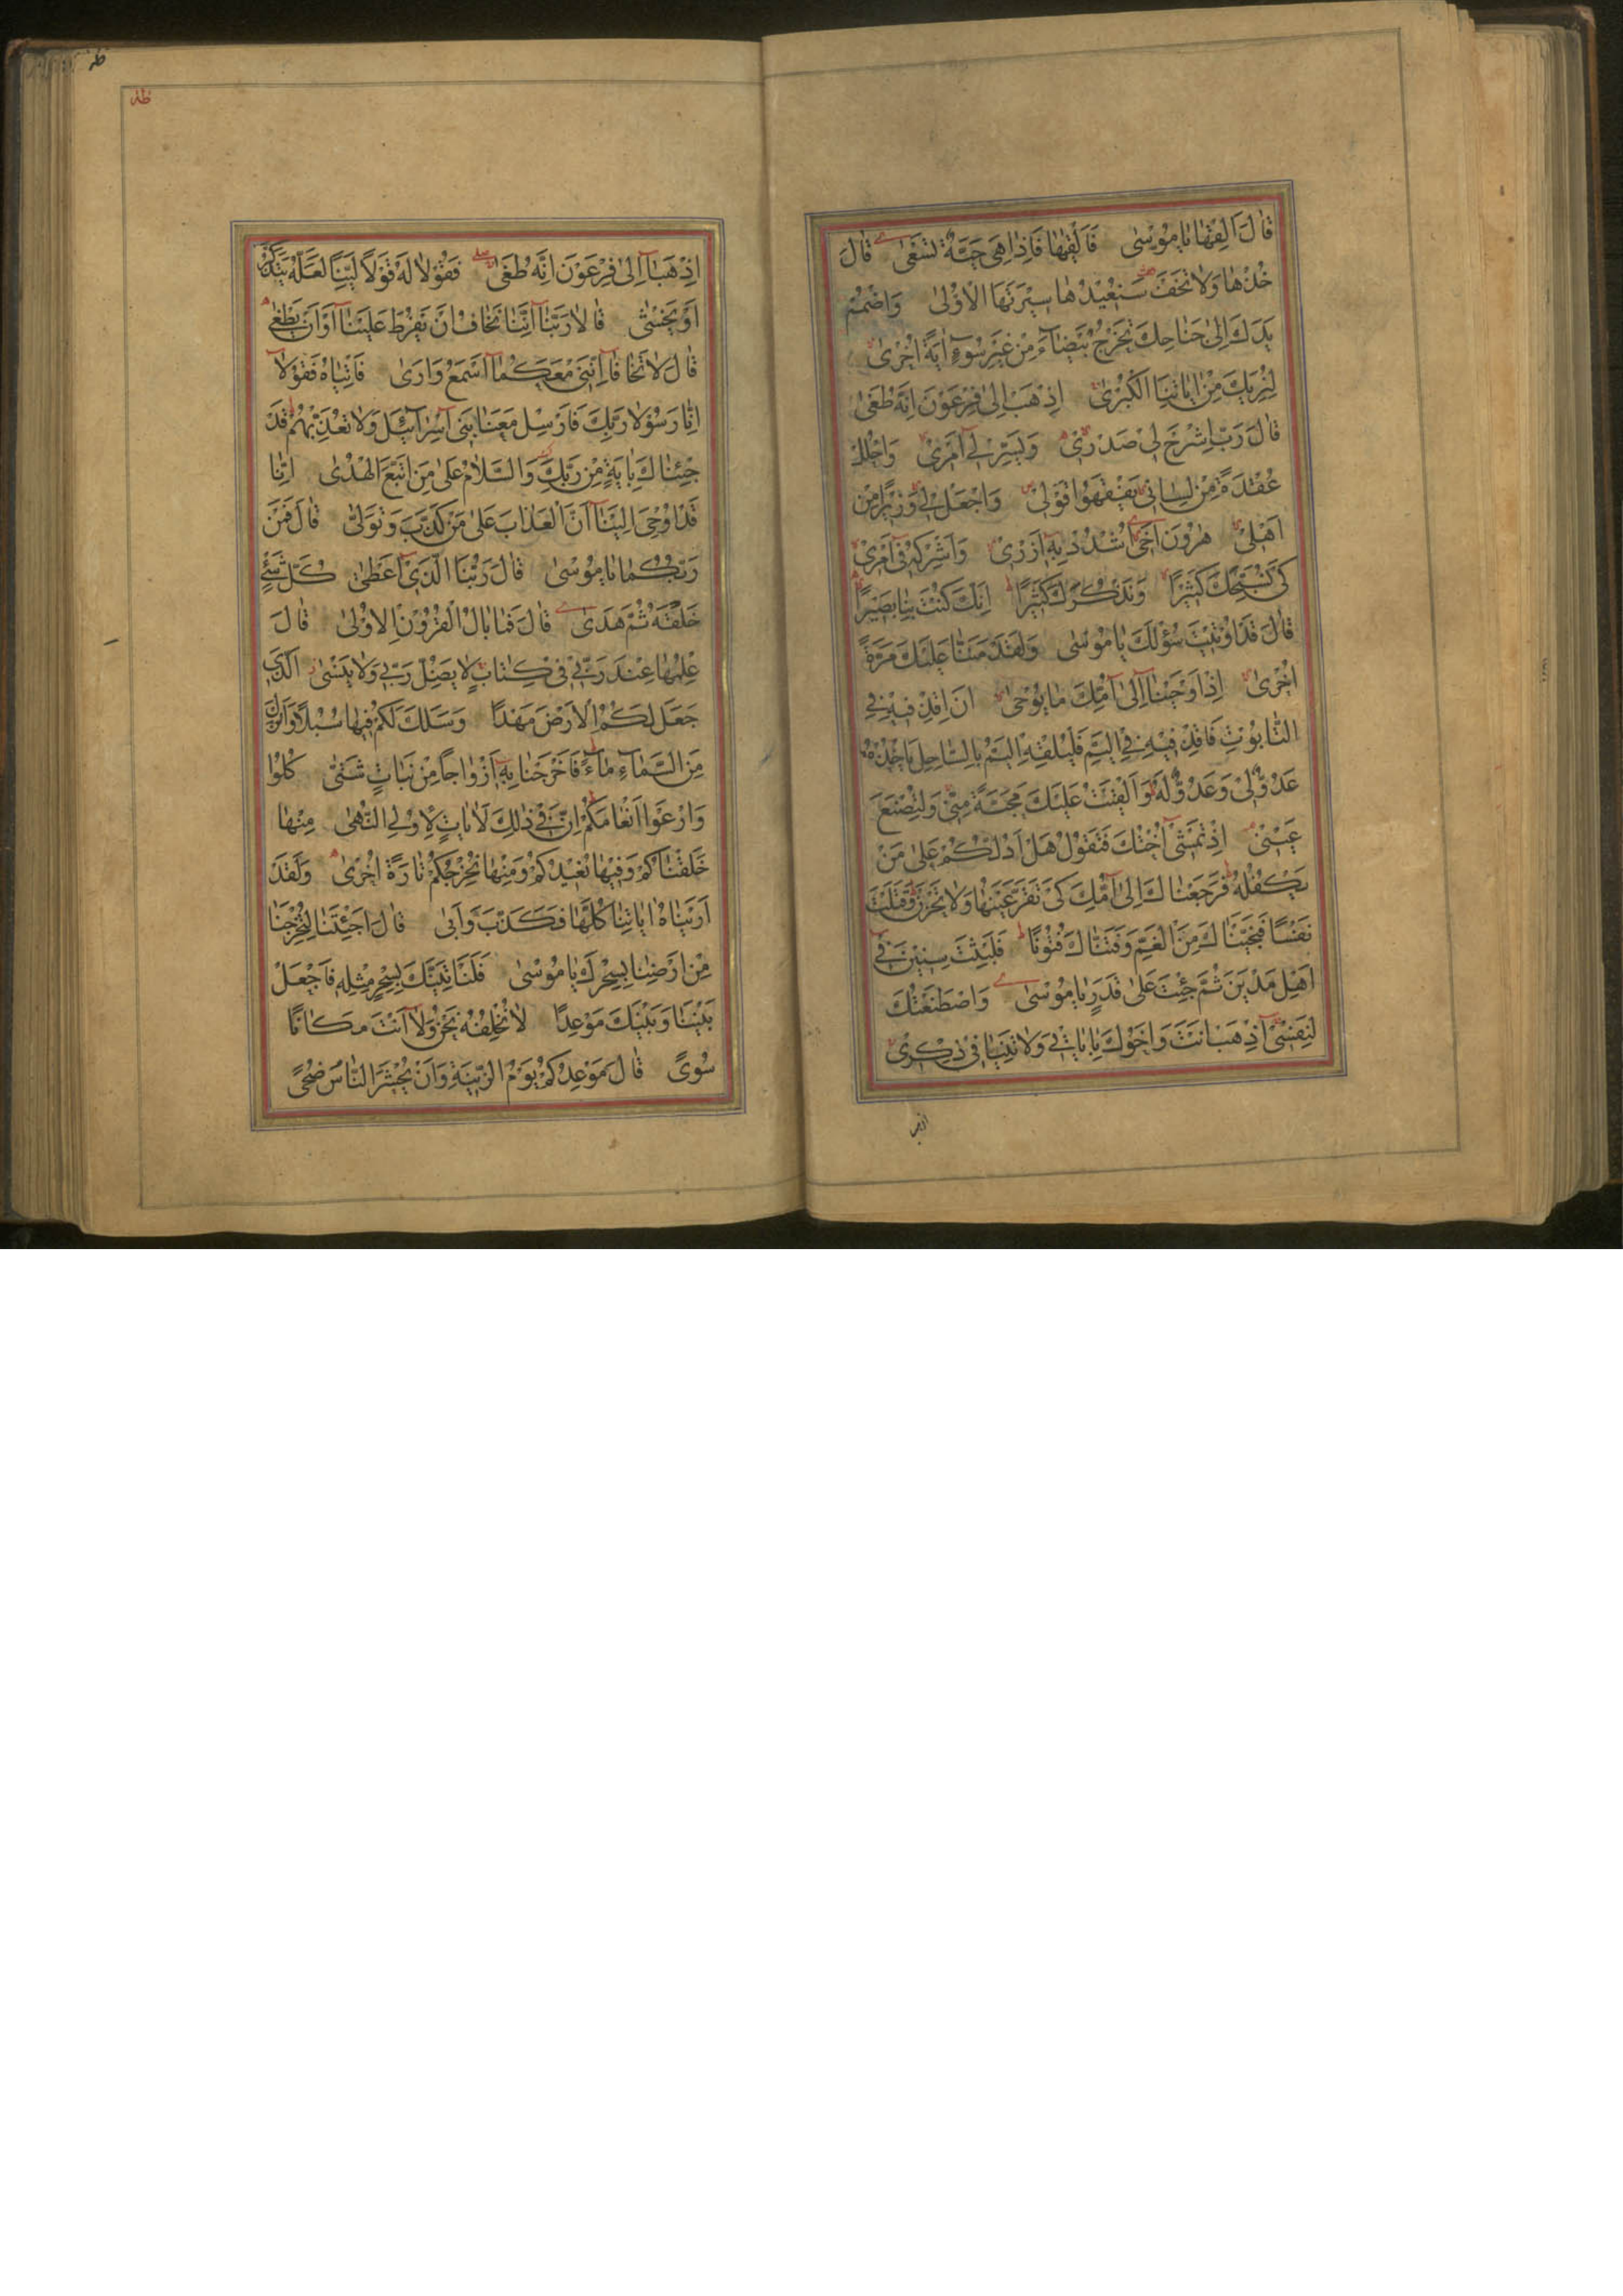 قَالَ اَلْقِهَا يَا مُوسٰى فَاَلْقٰيهَا فَاِذَا هِيَ حَيَّةٌ تَسْعٰى قَالَ
خُذْهَا وَلَا تَخَفْ سَنُعِيدُهَا سِيرَتَهَا الْاُولٰى وَاضْمُمْ
يَدَكَ اِلٰى جَنَاحِكَ تَخْرُجْ بَيْضَاءَ مِنْ غَيْرِ سُوءٍ اٰيَةً اُخْرٰى
لِنُرِيَكَ مِنْ اٰيَاتِنَا الْكُبْرٰى اِذْهَبْ اِلٰى فِرْعَوْنَ اِنَّهُ طَغٰى
قَالَ رَبِّ اشْرَحْ لِي صَدْرِي وَيَسِّرْ لِي اَمْرِي وَاحْلُلْ
عُقْدَةً مِنْ لِسَانِي يَفْقَهُوا قَوْلِي وَاجْعَلْ لِي وَزِيرًا مِنْ
اَهْلِي هٰرُونَ اَخِي اشْدُدْ بِهِ اَزْرِي وَاَشْرِكْهُ فِي اَمْرِي
كَيْ نُسَبِّحَكَ كَثِيرًا وَنَذْكُرَكَ كَثِيرًا اِنَّكَ كُنْتَ بِنَا بَصِيرًا
قَالَ قَدْ اُوتِيتَ سُؤْلَكَ يَا مُوسٰى وَلَقَدْ مَنَنَّا عَلَيْكَ مَرَّةً
اُخْرٰى اِذْ اَوْحَيْنَا اِلٰى اُمِّكَ مَا يُوحٰى اَنِ اقْذِفِيهِ فِي
التَّابُوتِ فَاقْذِفِيهِ فِي الْيَمِّ فَلْيُلْقِهِ الْيَمُّ بِالسَّاحِلِ يَاْخُذْهُ
عَدُوٌّ لِي وَعَدُوٌّ لَهُ وَاَلْقَيْتُ عَلَيْكَ مَحَبَّةً مِنِّي وَلِتُصْنَعَ
عَلٰى عَيْنِي اِذْ تَمْشِي اُخْتُكَ فَتَقُولُ هَلْ اَدُلُّكُمْ عَلٰى مَنْ
يَكْفُلُهُ فَرَجَعْنَاكَ اِلٰى اُمِّكَ كَيْ تَقَرَّ عَيْنُهَا وَلَا تَحْزَنَ وَقَتَلْتَ
نَفْسًا فَنَجَّيْنَاكَ مِنَ الْغَمِّ وَفَتَنَّاكَ فُتُونًا فَلَبِثْتَ سِنِينَ فِي
اَهْلِ مَدْيَنَ ثُمَّ جِئْتَ عَلٰى قَدَرٍ يَا مُوسٰى وَاصْطَنَعْتُكَ
لِنَفْسِي اِذْهَبْ اَنْتَ وَاَخُوكَ بِاٰيَاتِي وَلَا تَنِيَا فِي ذِكْرِي
اذهبا
طه
طه
اِذْهَبَا اِلٰى فِرْعَوْنَ اِنَّهُ طَغٰى فَقُولَا لَهُ قَوْلًا لَيِّنًا لَعَلَّهُ يَتَذَكَّرُ
اَوْ يَخْشٰى قَالَا رَبَّنَا اِنَّنَا نَخَافُ اَنْ يَفْرُطَ عَلَيْنَا اَوْ اَنْ يَطْغٰى
قَالَ لَا تَخَافَا اِنَّنِي مَعَكُمَا اَسْمَعُ وَاَرٰى فَاْتِيَاهُ فَقُولَا
اِنَّا رَسُولَا رَبِّكَ فَاَرْسِلْ مَعَنَا بَنِي اِسْرَائِيلَ وَلَا تُعَذِّبْهُمْ قَدْ
جِئْنَاكَ بِاٰيَةٍ مِنْ رَبِّكَ وَالسَّلَامُ عَلٰى مَنِ اتَّبَعَ الْهُدٰى اِنَّا
قَدْ اُوحِيَ اِلَيْنَا اَنَّ الْعَذَابَ عَلٰى مَنْ كَذَّبَ وَتَوَلّٰى قَالَ فَمَنْ
رَبُّكُمَا يَا مُوسٰى قَالَ رَبُّنَا الَّذِي اَعْطٰى كُلَّ شَيْءٍ
خَلْقَهُ ثُمَّ هَدٰى قَالَ فَمَا بَالُ الْقُرُونِ الْاُولٰى قَالَ
عِلْمُهَا عِنْدَ رَبِّي فِي كِتَابٍ لَا يَضِلُّ رَبِّي وَلَا يَنْسٰى اَلَّذِي
جَعَلَ لَكُمُ الْاَرْضَ مَهْدًا وَسَلَكَ لَكُمْ فِيهَا سُبُلًا وَاَنْزَلَ
مِنَ السَّمَاءِ مَاءً فَاَخْرَجْنَا بِهِ اَزْوَاجًا مِنْ نَبَاتٍ شَتّٰى كُلُوا
وَارْعَوْا اَنْعَامَكُمْ اِنَّ فِي ذٰلِكَ لَاٰيَاتٍ لِاُولِي النُّهٰى مِنْهَا
خَلَقْنَاكُمْ وَفِيهَا نُعِيدُكُمْ وَمِنْهَا نُخْرِجُكُمْ تَارَةً اُخْرٰى وَلَقَدْ
اَرَيْنَاهُ اٰيَاتِنَا كُلَّهَا فَكَذَّبَ وَاَبٰى قَالَ اَجِئْتَنَا لِتُخْرِجَنَا
مِنْ اَرْضِنَا بِسِحْرِكَ يَا مُوسٰى فَلَنَاْتِيَنَّكَ بِسِحْرٍ مِثْلِهِ فَاجْعَلْ
بَيْنَنَا وَبَيْنَكَ مَوْعِدًا لَا نُخْلِفُهُ نَحْنُ وَلَا اَنْتَ مَكَانًا
سُوًى قَالَ مَوْعِدُكُمْ يَوْمُ الزِّينَةِ وَاَنْ يُحْشَرَ النَّاسُ ضُحًى